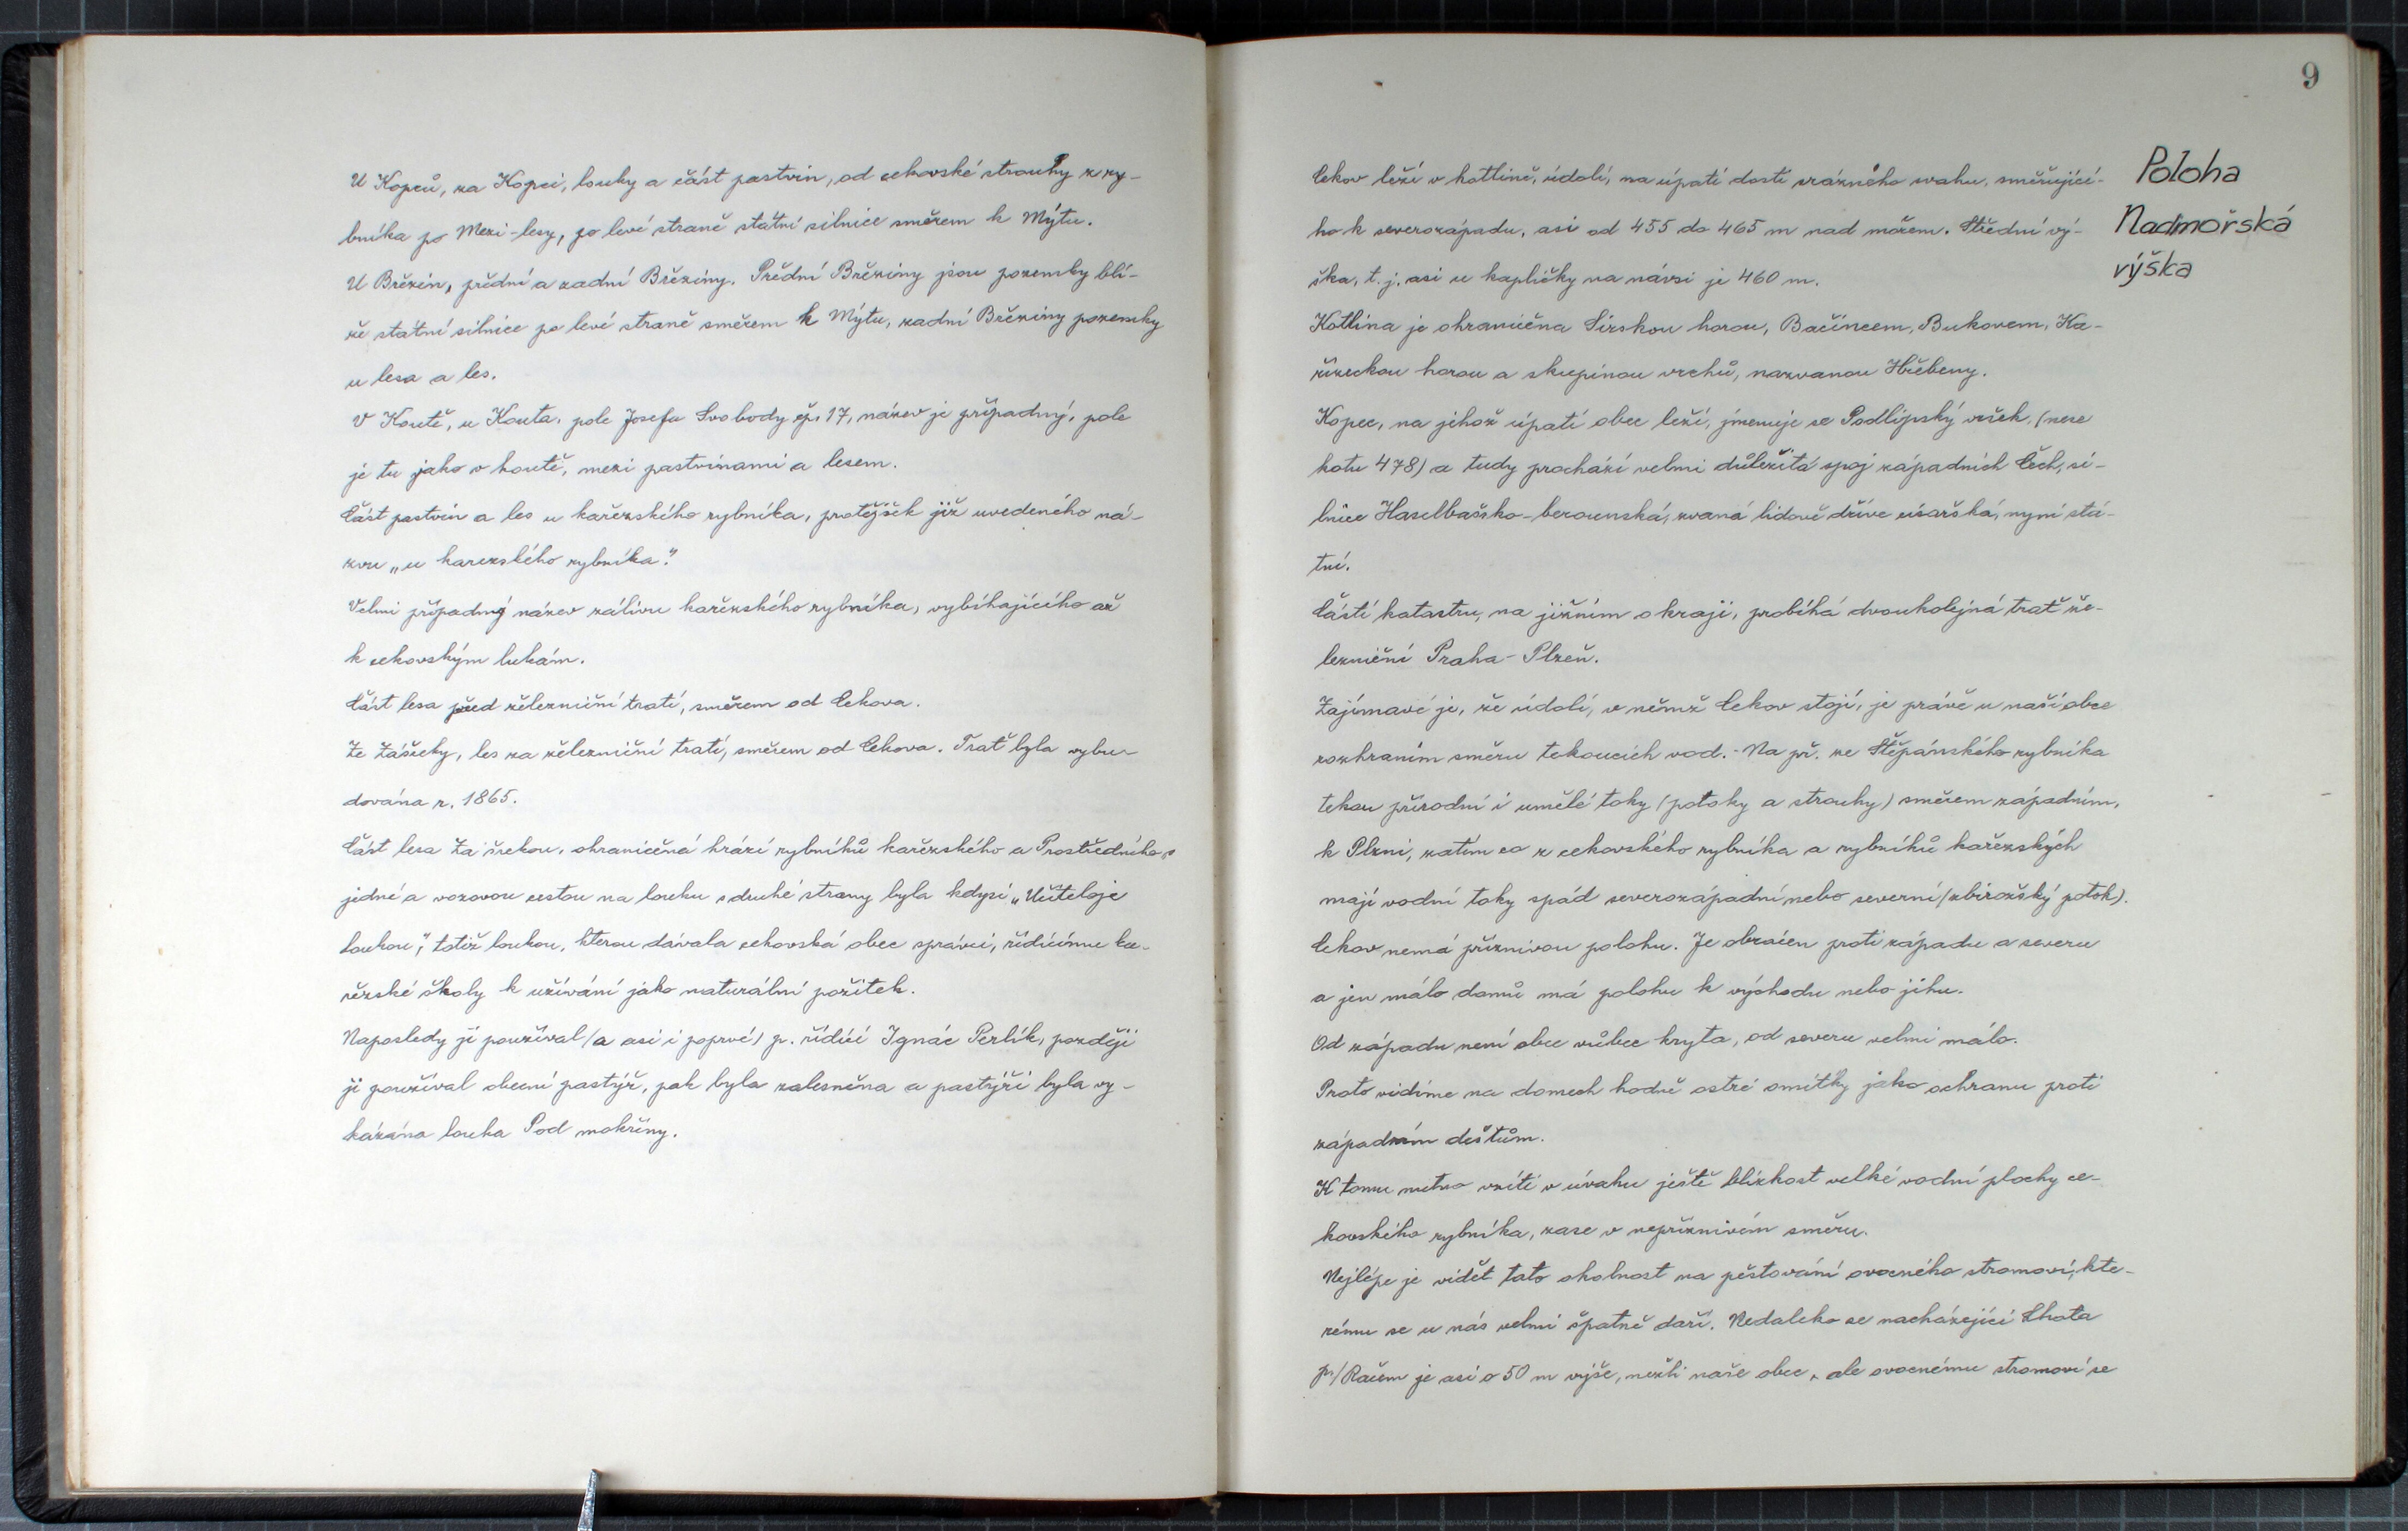 U Kopců, za Kopci, louky a část pastvin, od cekovské strouhy z ry-
bníka po Mezi-lesy, po levé straně státní silnice směrem k Mýtu.
U Březin, přední a zadní Březiny. Přední Březiny jsou pozemky blí-
že státní silnice po levé straně směrem k Mýtu, zadní Březiny pozemky
u lesa a les.
V Koutě, u Kouta, pole Josefa Svobody čp. 17, název je případný, pole
je tu jako v koutě, mezi pastvinami a lesem.
Část pastvin a les u kařezského rybníka, protějšek již uvedeného ná-
zvu „u karezského rybníka."
Velmi případný název zálivu kařezského rybníka, vybíhajícího až
k cekovským lukám.
Část lesa před železniční tratí, směrem od Cekova.
Ze Zášečky, les za železniční tratí, směrem od Cekova. Trať byla vybu-
dována r. 1865.
Část lesa Za šrekou, ohraničená hrází rybníků kařezského a Prostředního s
jedné a vozovou cestou na louku s druhé strany byla kdysi „Učiteloje
loukou", totiž loukou, kterou dávala cekovská obec správci, řídícímu ka-
řezské školy k užívání jako naturální požitek.
Naposledy jí používal (a asi i poprvé) p. řídící Ignác Perlík, později
ji používal obecní pastýř, pak byla zalesněna a pastýři byla vy-
kázána louka Pod mokřiny.
9
Poloha
Nadmořská
výška
Cekov leží v kotlině, údolí, na úpatí dosti srázného svahu, směřující-
ho k severozápadu, asi od 455 do 465 m nad mořem. Střední vý-
ška, t. j. asi u kapličky na návsi je 460 m.
Kotlina je ohraničena Sirskou horou, Bačincem, Bukovem, Ka-
řízeckou horou a skupinou vrchů, nazvanou Hřebeny.
Kopec, na jehož úpatí obec leží, jmenuje se Podlipský vršek, (nese
kotu 478) a tudy prochází velmi důležitá spoj západních Čech, si-
lnice Haselbašsko-berounská, zvaná lidově dříve císařská, nyní stá-
tní.
Částí katastru, na jižním okraji, probíhá dvoukolejná trať že-
lezniční Praha-Plzeň.
Zajímavé je, že údolí, v němž Cekov stojí, je právě u naší obce
rozhraním směru tekoucích vod. - Na př. ze Štěpánského rybníka
tekou přírodní i umělé toky (potoky a strouhy) směrem západním,
k Plzni, zatím co z cekovského rybníka a rybníků kařezských
mají vodní toky spád severozápadní nebo severní (zbirožský potok).
Cekov nemá příznivou polohu. Je obrácen proti západu a severu
a jen málo domů má polohu k východu nebo jihu.
Od západu není obec vůbec kryta, od severu velmi málo.
Proto vidíme na domech hodně ostré omítky jako ochranu proti
západním deštům.
K tomu nutno vzíti v úvahu ještě blízkost velké vodní plochy ce-
kovského rybníka, zase v nepříznivém směru.
Nejlépe je vidět tato okolnost na pěstování ovocného stromoví, kte-
rému se u nás velmi špatně daří. Nedaleko se nacházející Lhota
p/Račem je asi o 50 m výše, nežli naše obec, ale ovocnému stromoví se